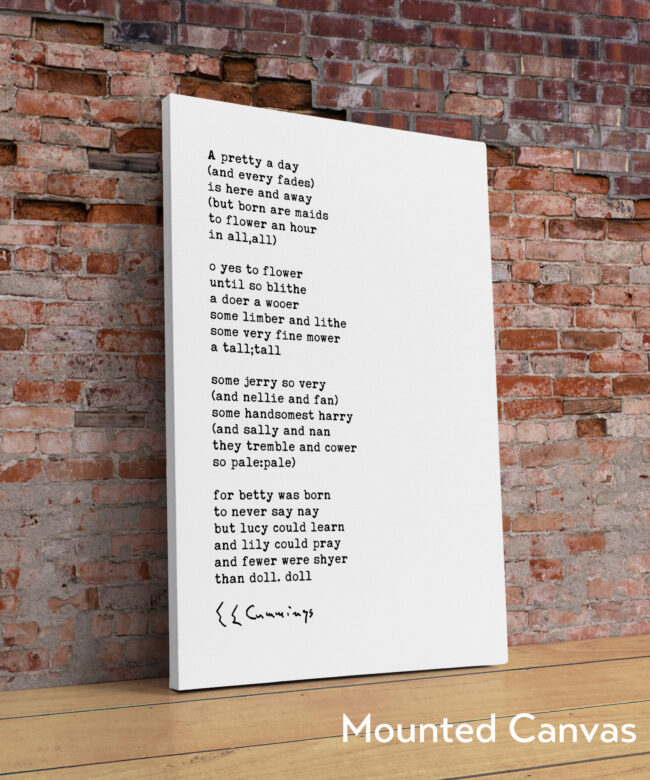 A pretty a day
(and every fades)
is here and away
(but born are maids
to flower an hour
in all,all)

o yes to flower
until so blithe
a doer a wooer
some limber and lithe
some very fine mower
a tall;tall

some jerry so very
(and nellie and fan)
some handsomest harry
(and sally and nan
they tremble and cower
so pale:pale)

for betty was born
to never say nay
but lucy could learn
and lily could pray
and fewer were shyer
than doll. doll

E E Cummings
Mounted Canvas